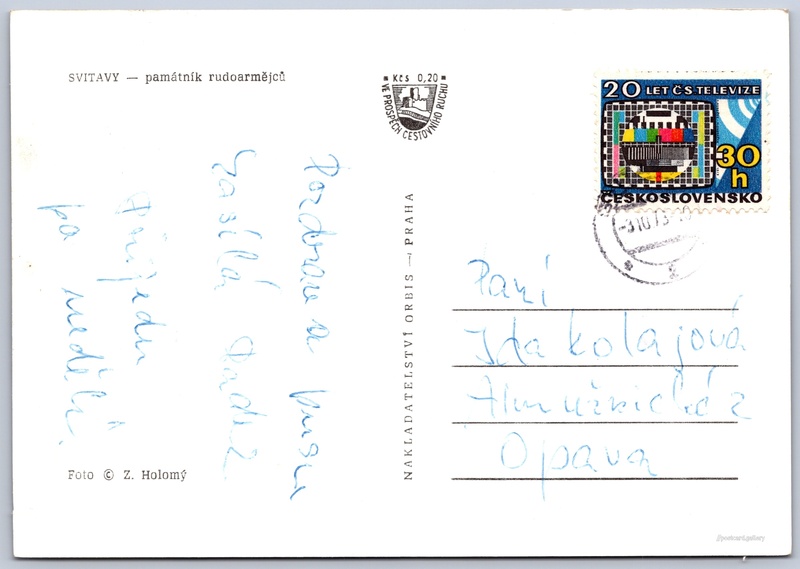 SVITAVY — památník rudoarmějců
Kčs 0,20
VE PROSPĚCH CESTOVNÍHO RUCHU
20 LET ČS TELEVIZE
30
h
ČESKOSLOVENSKO
-3.10.73
Pozdrav a pusu
zasílá
Přijedu
po neděli.
NAKLADATELSTVÍ ORBIS — PRAHA
Paní
Ida Kolajová
2
Opava
Foto © Z. Holomý